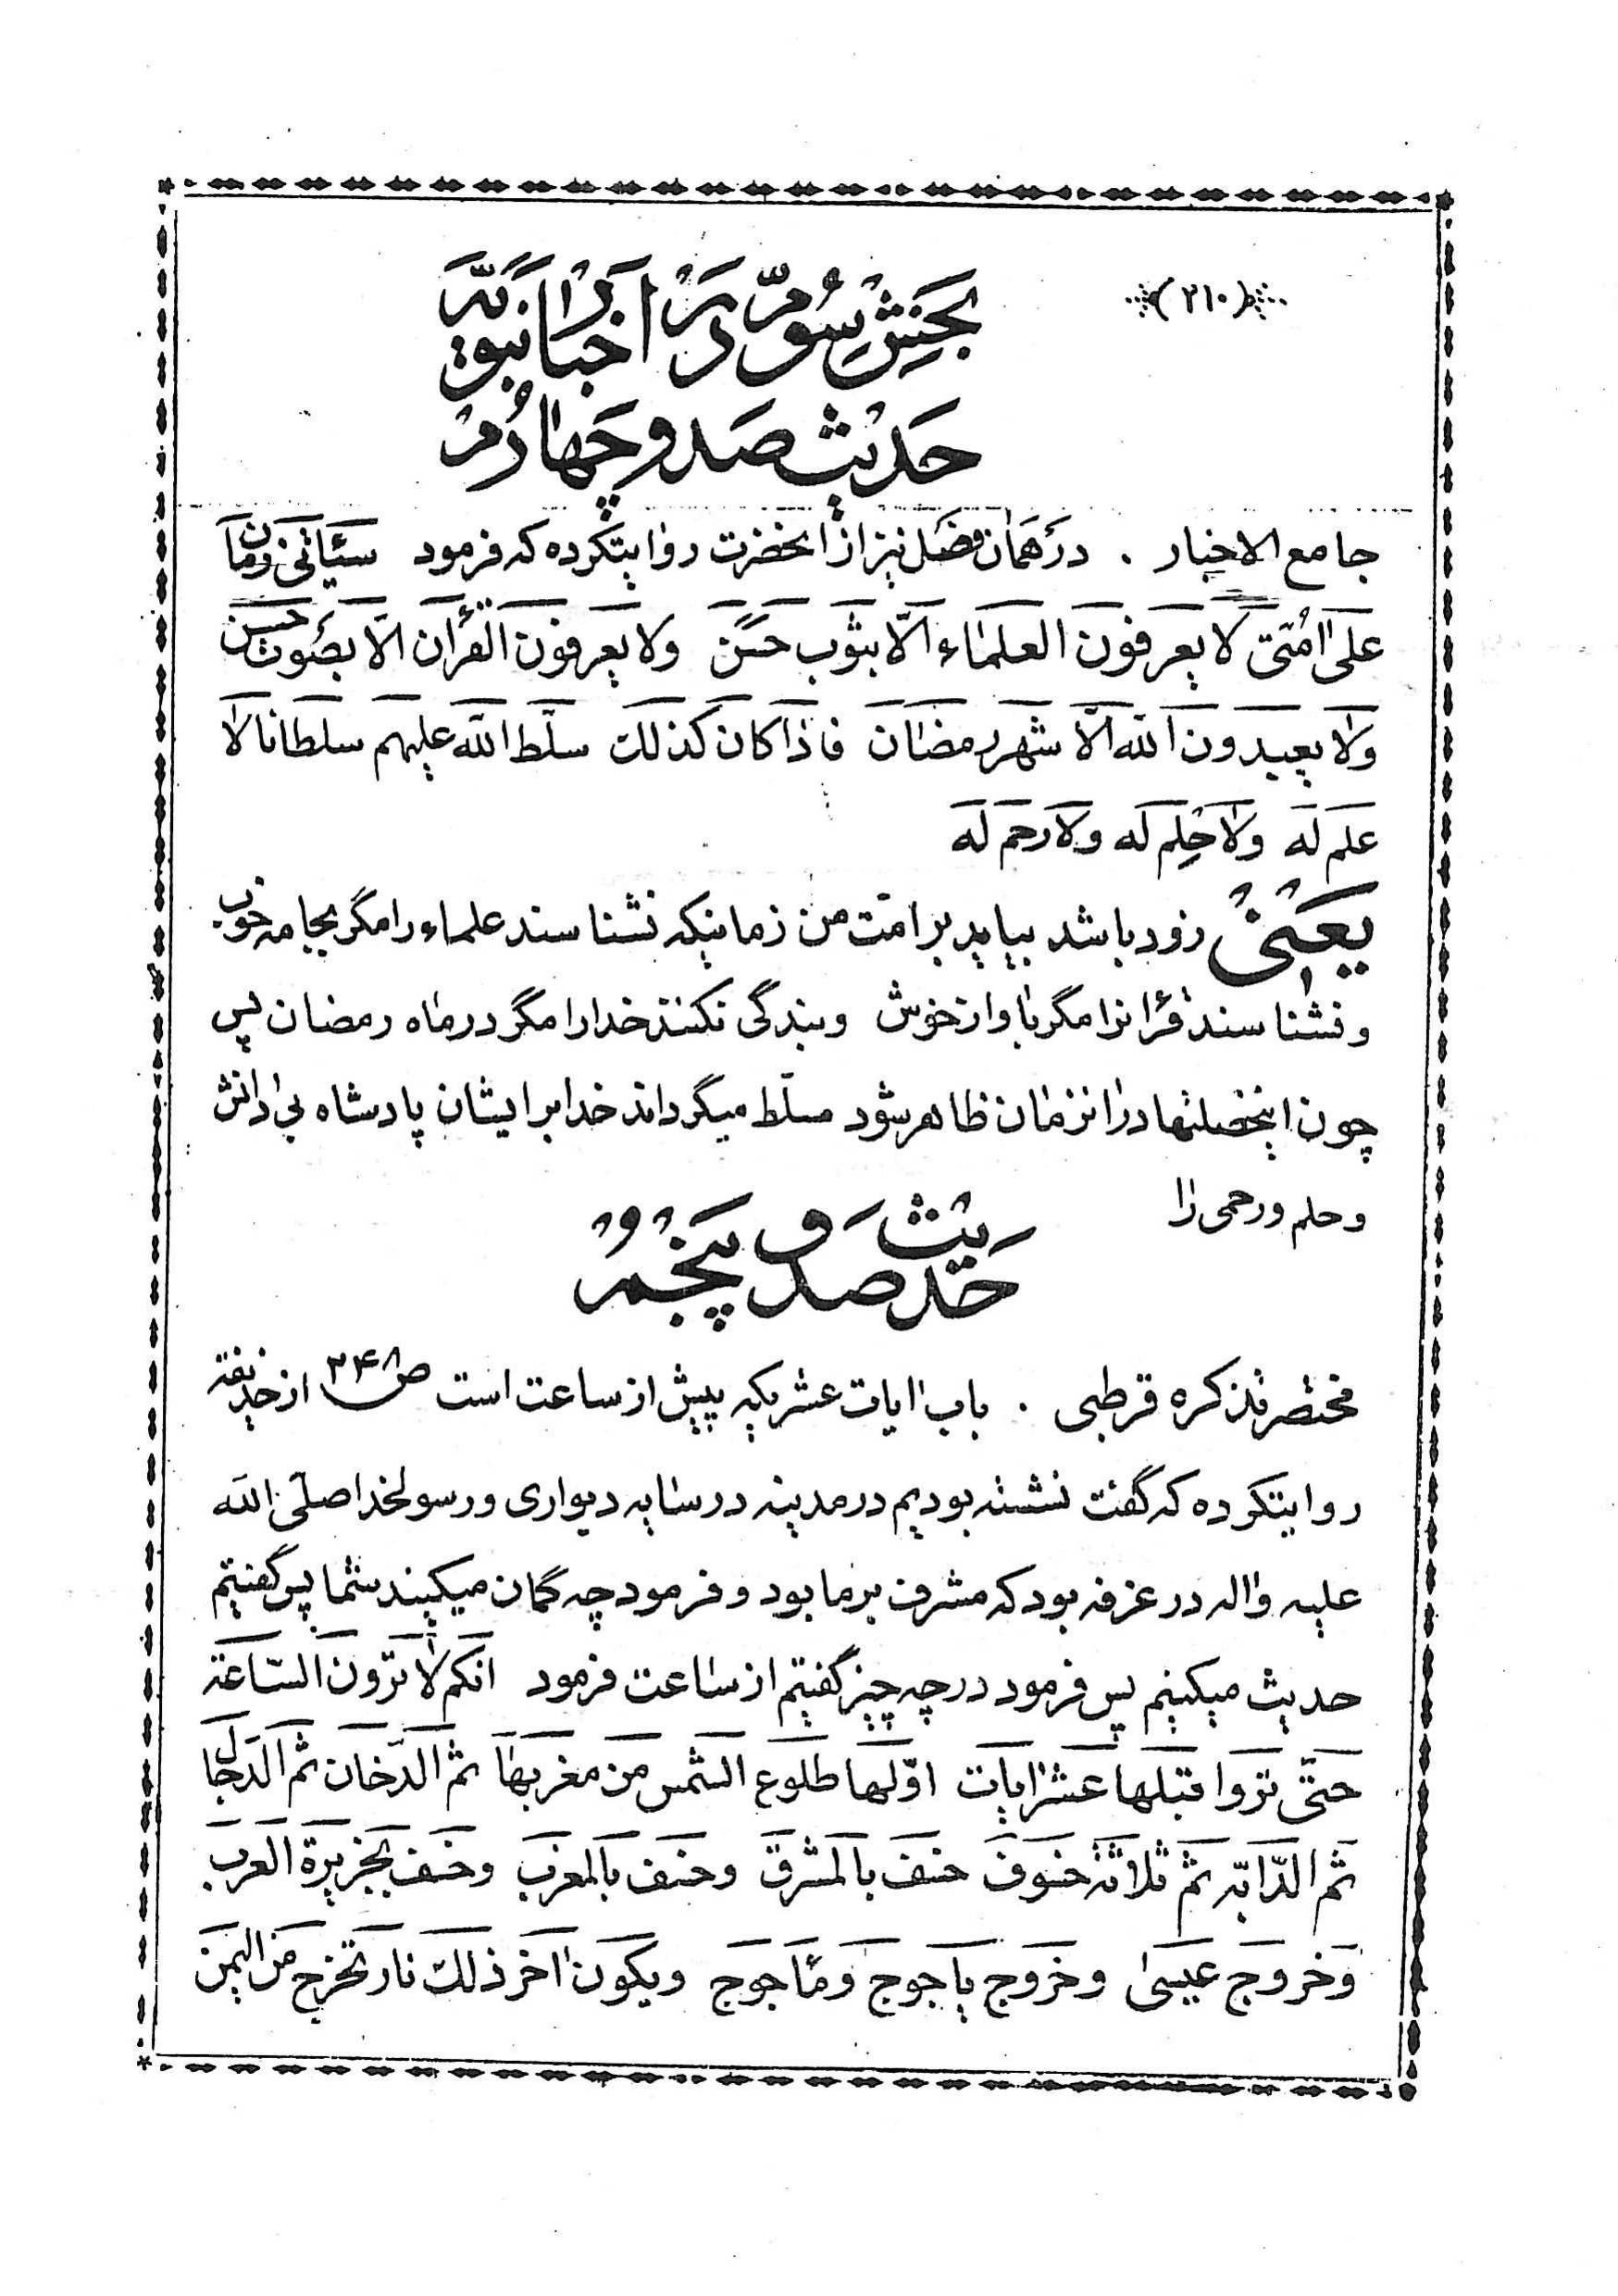 (٢١٠)
بخش سوّم در اخبار نبویّه
حدیث صد و چهارم
جامع الاخبار . در همان فصل نیز از انحضرت روایتکرده که فرمود سیأتی زمان
علی امّتی لا یعرفون العلماء الّا بثوب حسن ولا یعرفون القرأن الّا بصوت حسن
ولا یعبدون الله الّا شهر رمضان فاذا کان کذلک سلّط الله علیهم سلطانا لا
علم له ولا حلم له ولا رحم له
یعنی زود باشد بیاید بر امّت من زمانیکه نشناسند علماء را مگر بجامه خوب
و نشناسند قرانرا مگر باواز خوش و بندگی نکنند خدا را مگر در ماه رمضان پس
چون اینخصلتها در انزمان ظاهر شود مسلّط میگرداند خدا بر ایشان پادشاه بی دانش
و حلم و رحمی را
حدیث صد و پنجم
مختصر تذکره قرطبی . باب ایات عشریکه پیش از ساعت است ص ۲۴۸ از حذیفه
روایتکرده که گفت نشسته بودیم در مدینه در سایه دیواری و رسولخدا صلّی الله
علیه واله در غرفه بود که مشرف بر ما بود و فرمود چه گمان میکنید شما پس گفتیم
حدیث میکنیم پس فرمود در چه چیز گفتیم از ساعت فرمود انکم لا ترون السّاعة
حتّی تروا قبلها عشر ایات اوّلها طلوع الشمس من مغربها ثم الدّخان ثم الدجال
ثم الدّابه ثم ثلاثة خسوف خسف بالمشرق وخسف بالمغرب وخسف بجزیرة العرب
وخروج عیسی وخروج یاجوج وماجوج ویکون اخر ذلک نار تخرج من الیمن